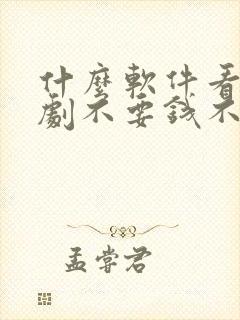 什麼軟件看
劇不要錢不
孟嘗君